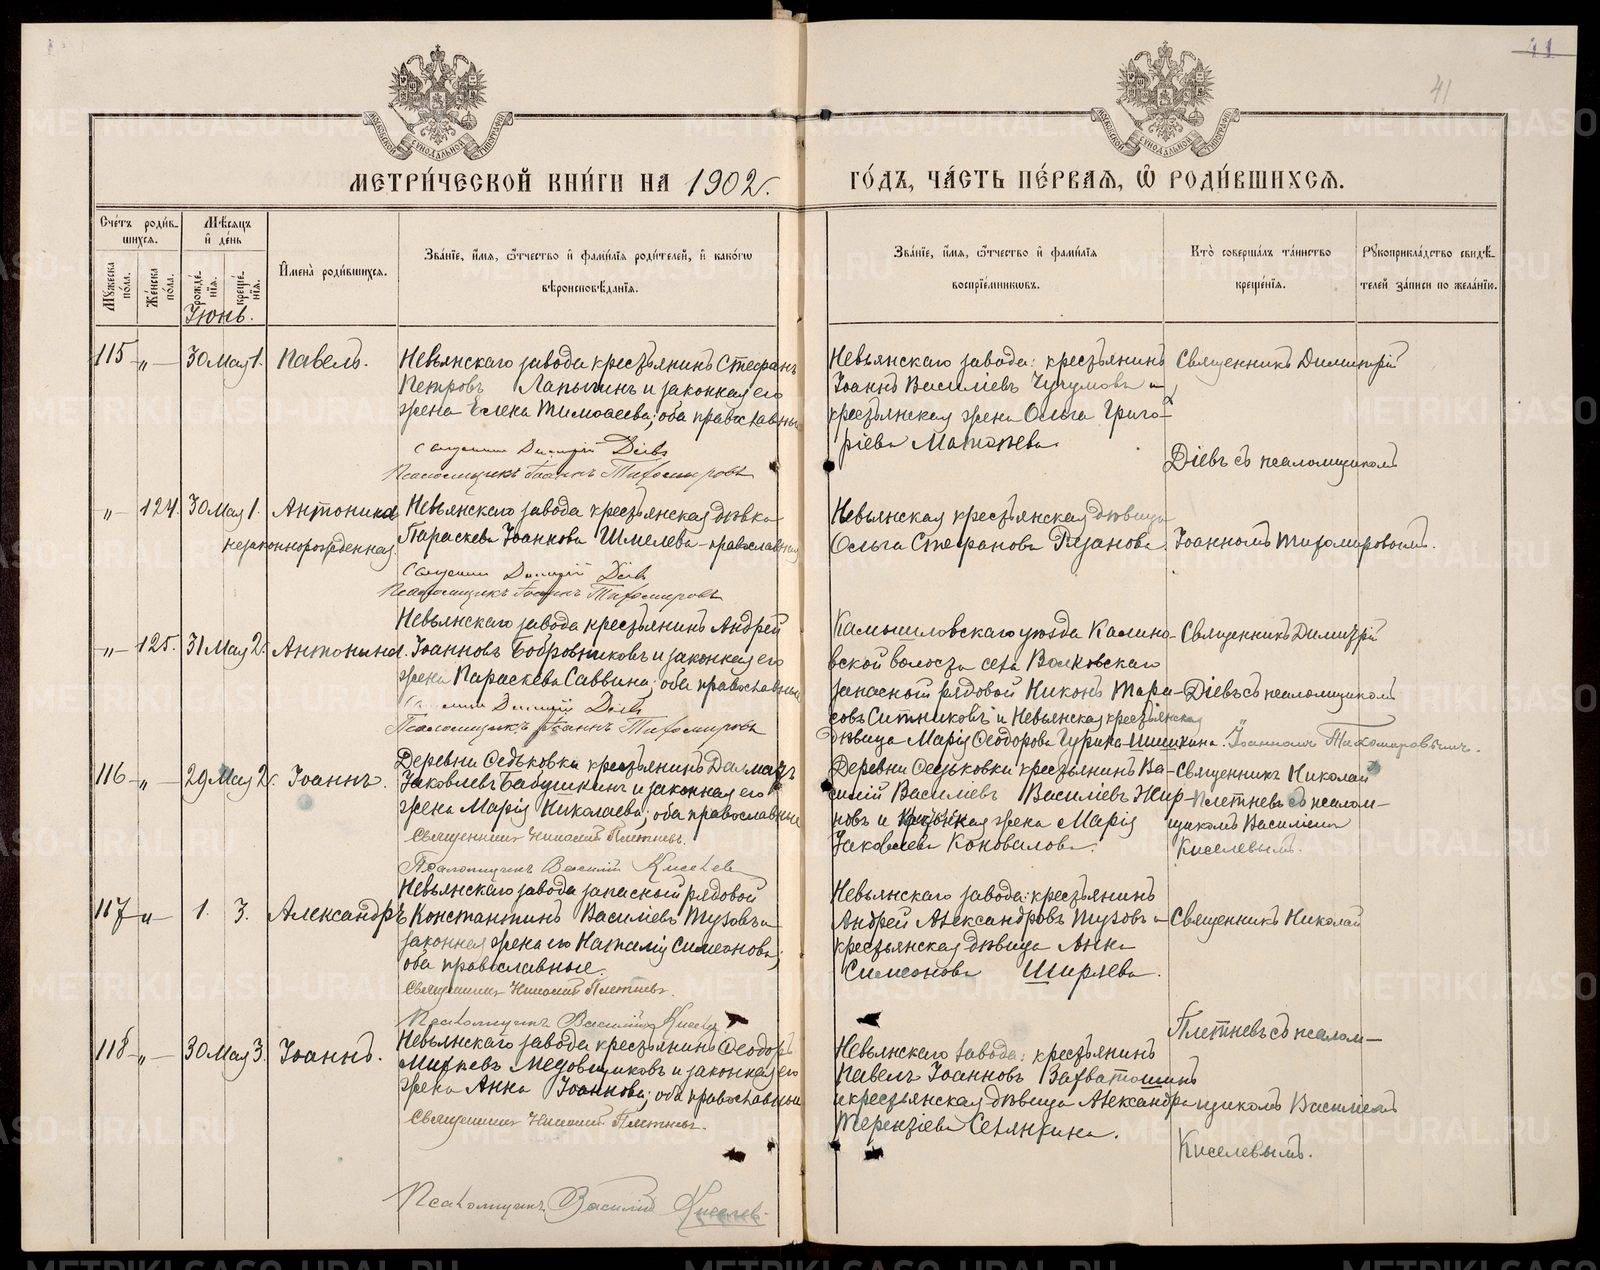 41
41
МОСКОВСКОЙ СѴНОДАЛЬНОЙ ТИПОГРАФІИ
МОСКОВСКОЙ СѴНОДАЛЬНОЙ ТИПОГРАФІИ
МЕТРИ́ЧЕСКОЙ КНИ́ГИ НА 1902 г. ГО́ДЪ, ЧА́СТЬ ПЕ́РВАѦ, Ѡ РОДИ́ВШИХСѦ.
Сче́тъ роди́вшихсѧ.
Мꙋ́жеска по́ла.
Же́нска по́ла.
Мѣ́сѧцъ и҆ де́нь
рожде́нїѧ.
креще́нїѧ.
И҆мена̀ роди́вшихсѧ.
Зва́нїе, и҆́мѧ, ѻ҆́тчество и҆ фами́лїѧ роди́телей, и҆ како́гѡ
вѣроисповѣ́данїѧ.
Зва́нїе, и҆́мѧ, ѻ҆́тчество и҆ фами́лїѧ
воспрїе́мникѡвъ.
Кто̀ соверша́лъ та́инство
креще́нїѧ.
Рꙋкоприкла́дство свидѣ́-
телей за́писи по жела́нїю.
Іюнь.
115 „ 30 Мая 1. Павелъ.
Невьянскаго завода крестьянинъ Стефанъ
Петровъ Лапыгинъ и законная его
жена Елена Тимоѳеева; оба православные
Священникъ Димитрій Діевъ
Псаломщикъ Іоаннъ Тихомировъ
Невьянскаго завода: крестьянинъ
Іоаннъ Василіевъ Чугумовъ и
крестьянская жена Ольга Григо-
ріева Матопева.
Священникъ Димитрій
Діевъ съ псаломщикомъ
„ 124. 30 Мая 1. Антонина
незаконнорожденная
Невьянскаго завода крестьянская дѣвка
Параскева Іоаннова Шмелева - православная
Священникъ Димитрій Діевъ
Псаломщикъ Іоаннъ Тихомировъ
Невьянская крестьянская дѣвица
Ольга Стефанова Рязанова.
Іоанномъ Тихомировымъ.
„ 125. 31 Мая 2. Антонина.
Невьянскаго завода крестьянинъ Андрей
Іоанновъ Бобровниковъ и законная его
жена Параскева Саввина; оба православные
Священникъ Димитрій Діевъ
Псаломщикъ Іоаннъ Тихомировъ
Камышловскаго уѣзда Калино-
вской волости села Волковскаго
запасной рядовой Никонъ Тара-
совъ Ситниковъ и Невьянская крестьянская
дѣвица Марія Ѳеодорова Гурина Шишкина.
Священникъ Димитрій
Діевъ съ псаломщикомъ
Іоанномъ Тихомировымъ.
116 „ 29 Мая 2. Іоаннъ.
Деревни Ѳедьковки крестьянинъ Далматъ
Іаковлевъ Бабушкинъ и законная его
жена Марія Николаева; оба православные
Священникъ Николай Плетневъ.
Псаломщикъ Василій Киселевъ
Деревни Ѳедьковки крестьянинъ Ва-
силій Василіевъ Василіевъ Жир-
новъ и жена Марія
Іаковлева Коновалова.
Священникъ Николай
Плетневъ съ псалом-
щикомъ Василіемъ
Киселевымъ.
117 „ 1. 3. Александръ
Невьянскаго завода запасной рядовой
Константинъ Василіевъ Тузовъ и
законная жена его Наталія Симеонова;
оба православные.
Священникъ Николай Плетневъ.
Псаломщикъ Василій Киселевъ
Невьянскаго завода: крестьянинъ
Андрей Александровъ Тузовъ и
крестьянская дѣвица Анна
Симеонова Ширяева.
Священникъ Николай
Плетневъ съ псалом-
118 „ 30 Мая 3. Іоаннъ.
Невьянскаго завода крестьянинъ Ѳеодоръ
Михеевъ Медовщиковъ и законная его
жена Анна Іоаннова; оба православные
Священникъ Николай Плетневъ.
Псаломщикъ Василій Киселев.
Невьянскаго завода: крестьянинъ
Павелъ Іоанновъ Захватошинъ
и крестьянская дѣвица Александра
Терентіева Селянкина.
щикомъ Василіемъ
Киселевымъ.
METRIKI.GASO-URAL.RU